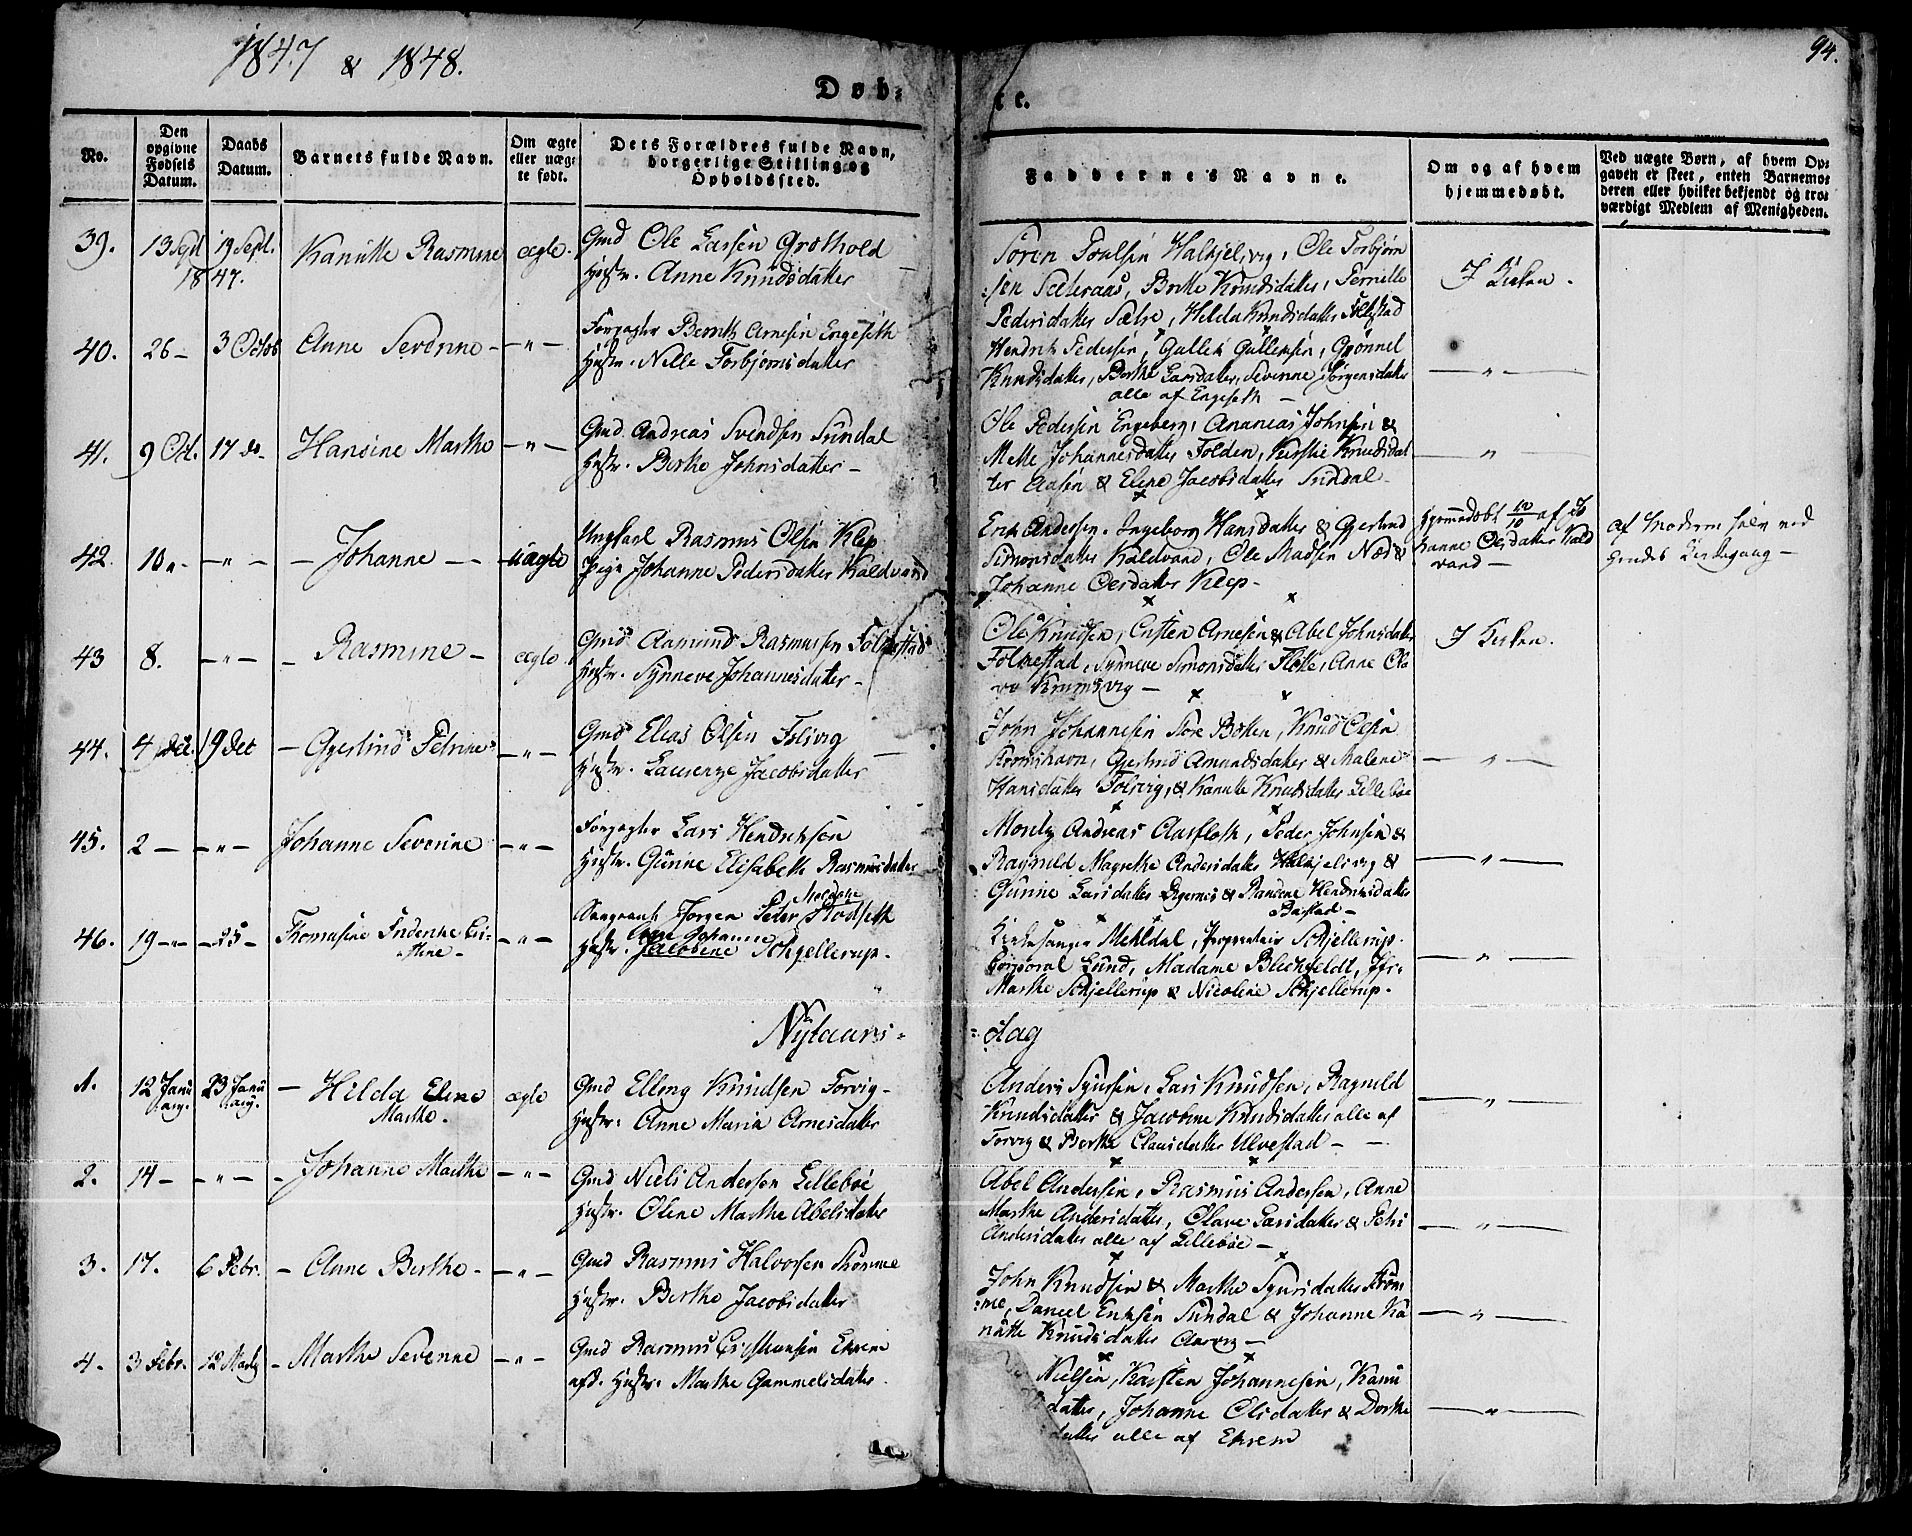 1847 & 1848.
94.
Døb-
te.
No.
Den opgivne Fødsels Datum.
Daabs Datum.
Barnets fulde Navn.
Om ægte eller uægte født.
Dets Forældres fulde Navn, borgerlige Stilling og Opholdssted.
Faddernes Navne.
Om og af hvem hjemmedøbt.
Ved uægte Børn, af hvem Opgaven er skeet, enten Barnemoderen eller hvilket bekjendt og troværdigt Medlem af Menigheden.
39. 13 Sept 19 Sept. Kanutte Rasmine ægte. Gmd Ole Larsen Grøthold
1847.
Hustr. Anne Knudsdatter
Søren Poulsen Halkjelsvig, Ole Torbjørn
sen Sæteraas, Britte Knudsdatter, Pernille
Pedersdatter Sætre, Helda Knudsdatter
I Kirken.
40. 26 - 3 Octob Anne Severine - - " - Forpagter Bernth Arnesen Engeseth
Hustr. Nille Torbjørnsdatter
Hendrik Pedersen, Gullik Gulliksen, Grønnel
Knudsdatter, Berthe Larsdatter, Severine Jørgensdatter
alle af Engeseth -
- " -
41. 9 Oct. 17 do- Hansine Marthe - " - Gmd. Andreas Svendsen Sundal
Hustr. Berthe Johnsdatter -
Ole Pedersen Engeberg, Ananias Johnsen &
Mette Johannesdatter Folden, Kirstie Knudsdat
ter Aasen & Elene Jacobsdatter Sundal -
- " -
42. 10 " - - " - - Johanne - - uægte Ungkarl Rasmus Olsen Klep
Pige Johanne Pedersdatter Kaldvand
Erik Andersen, Ingeborg Hansdatter & Gjertrud
Simonsdatter Kaldvand, Ole Madsen Næs &
Johanne Olsdatter Klep -
Hjemmedøbt 10/10 af Jo
hanne Olsdatter Kald
vand -
af Moderen selv ved
hendes Kirkegang -
43 8. - " - - Rasmine - ægte. Gmd Aamund Rasmussen Folkestad
Hustr. Synneve Johannesdatter -
Ole Knudsen, Ensten Arnesen & Abel Johnsdatter
Folkestad, Synneve Simonsdatter Flote, Anne Ola
va Krumsvig -
I Kirken.
44. 4 Dec. 19 Det - Gjertrud Petrine - " - Gmd Elias Olsen Folsvig
Hustr. Laurenze Jacobsdatter -
John Johannesen Store Bakken, Knud Olsen
Romshavn, Gjertrud Amundsdatter & Malene
Hansdatter Folsvig, & Kanutte Knudsdatter Lillebøe
- " -
45. 2 - - " - Johanne Severine - " - Forpagter Lars Hendriksen
Hustr. Gurine Elisabeth Rasmusdatter
Moritz Andreas Aarfloth, Peder Johnsen &
Ragnild Magrethe Andersdatter Halkjelsvig &
Gunne Larsdatter Digernes & Randine Hendriksdatter
Bastad -
- " -
46. 19 - " - - 25 - Thomasine Frederike Cri-
stine -
- " - Jørgen Peder Stodseth
Johanne
Hustr. Jacobine Schjellerup -
Kirkesanger Mehldal, Proprietair Schjellerup
Corporal Lund, Madame Blechfeldt, Jfr.
Marthe Schjellerup & Nicoline Schjellerup -
- " -
Nytaars-
dag
1. 12 Janu
ary.
23 Janu
ary.
- Hilda Eline
Marthe.
ægte Gmd Elling Knudsen Torvig -
Hustr: Anne Maria Arnesdatter
Anders Syvrsen, Lars Knudsen, Ragnild
Knudsdatter & Jacobine Knudsdatter alle af
Torvig & Berthe Clausdatter Ulvestad -
- " -
2. 14 - - " - - Johanne Marthe - " - Gmd Niels Andersen Lillebøe
Hustr. Oline Marthe Abelsdatter
Abel Andersen, Rasmus Andersen, Anne
Marthe Andersdatter, Olave Larsdatter &
Andersdatter alle af Lillebøe -
- " -
3. 17. 6 Febr. - Anne Berthe - - " - Gmd Rasmus Halvorsen Strømme
Hustr. Berthe Jacobsdatter
John Knudsen & Marthe Syvrsdatter Strøm
me, Daniel Eriksen Sundal & Johanne Ka
nutte Knudsdatter Aarvig -
- " -
4. 3 Febr. 12 Marty - Marthe Severine - " - Gmd Rasmus Cristiansen Ekrem
afd. Hustr. Marthe Gammelsdatter.
Nielsen, Karsten Johannesen, Kanu
datter, Johanne Olsdatter & Dorthe
datter alle af Ekrem
- " -